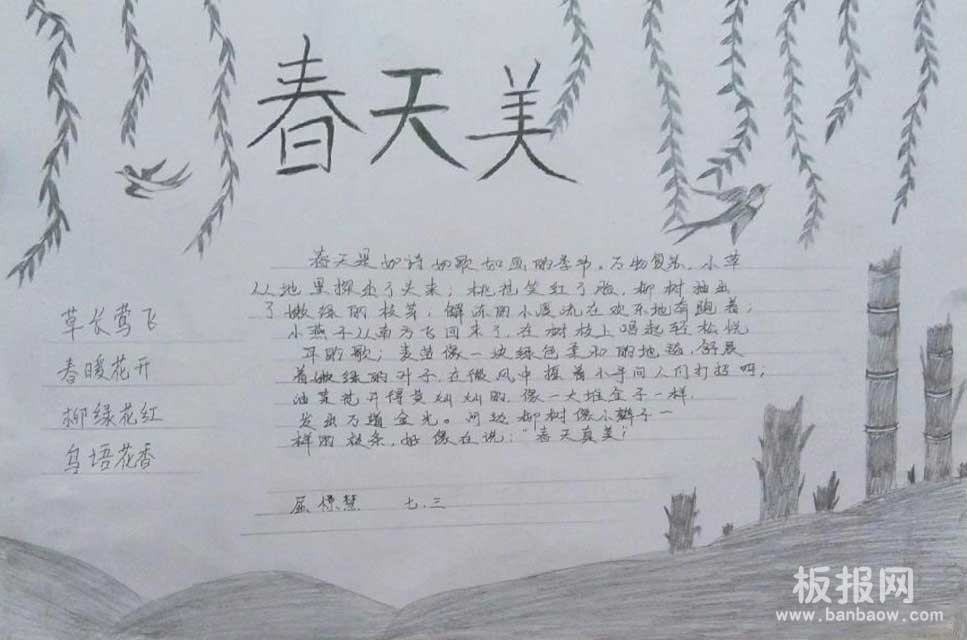 春天美
草长莺飞
春暖花开
柳绿花红
鸟语花香
春天是如诗如歌如画的季节。万物复苏,小草
从地里探出了头来;桃花笑红了脸,柳树抽出
了嫩绿的枝芽;解冻的小溪流在欢乐地奔跑着;
小燕子从南方飞回来了,在树枝上唱起轻松悦
耳的歌;麦苗像一块绿色柔和的地毯,舒展
着嫩绿的叶子,在微风中摇着小手向人们打招呼;
油菜花开得黄灿灿的,像一大堆金子一样,
发出万道金光。河边柳树像小辫子一
样的枝条,好像在说:“春天真美!
屈 慧 七.三
板报网
www.banbaow.com